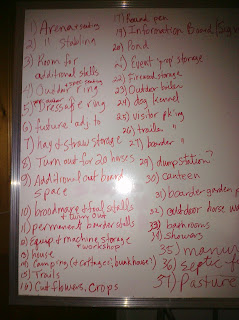 1) Arena + seating
2) " Stabling
3) Room for
additional stalls
4) Outdoor ring
+ spec. seating
5) Dressage ring
6) future adj to
7) hay & straw storage
8) Turn out for 20 horses
9) Additional out board
space
10) broodmare + foal stalls
+ turn out
11) permanent boarder stalls
12) Equip & machine storage
+ workshop
13) house
14) Camping, (+ cottages, bunkhouse?)
15) Trails
16) Cut flowers, crops
17) Round pen
19) Information Board/Sign
20) Pond
21) Event "prop" storage
22) Firewood storage
23) Outdoor boiler
24) dog kennel
25) visitor pking
26) trailer "
27) boarder "
29) dumpstation?
30) canteen
31) boarder garden
32) outdoor horse
33) bathrooms
34) Showers
35) manure
36) Septic
37) Pasture